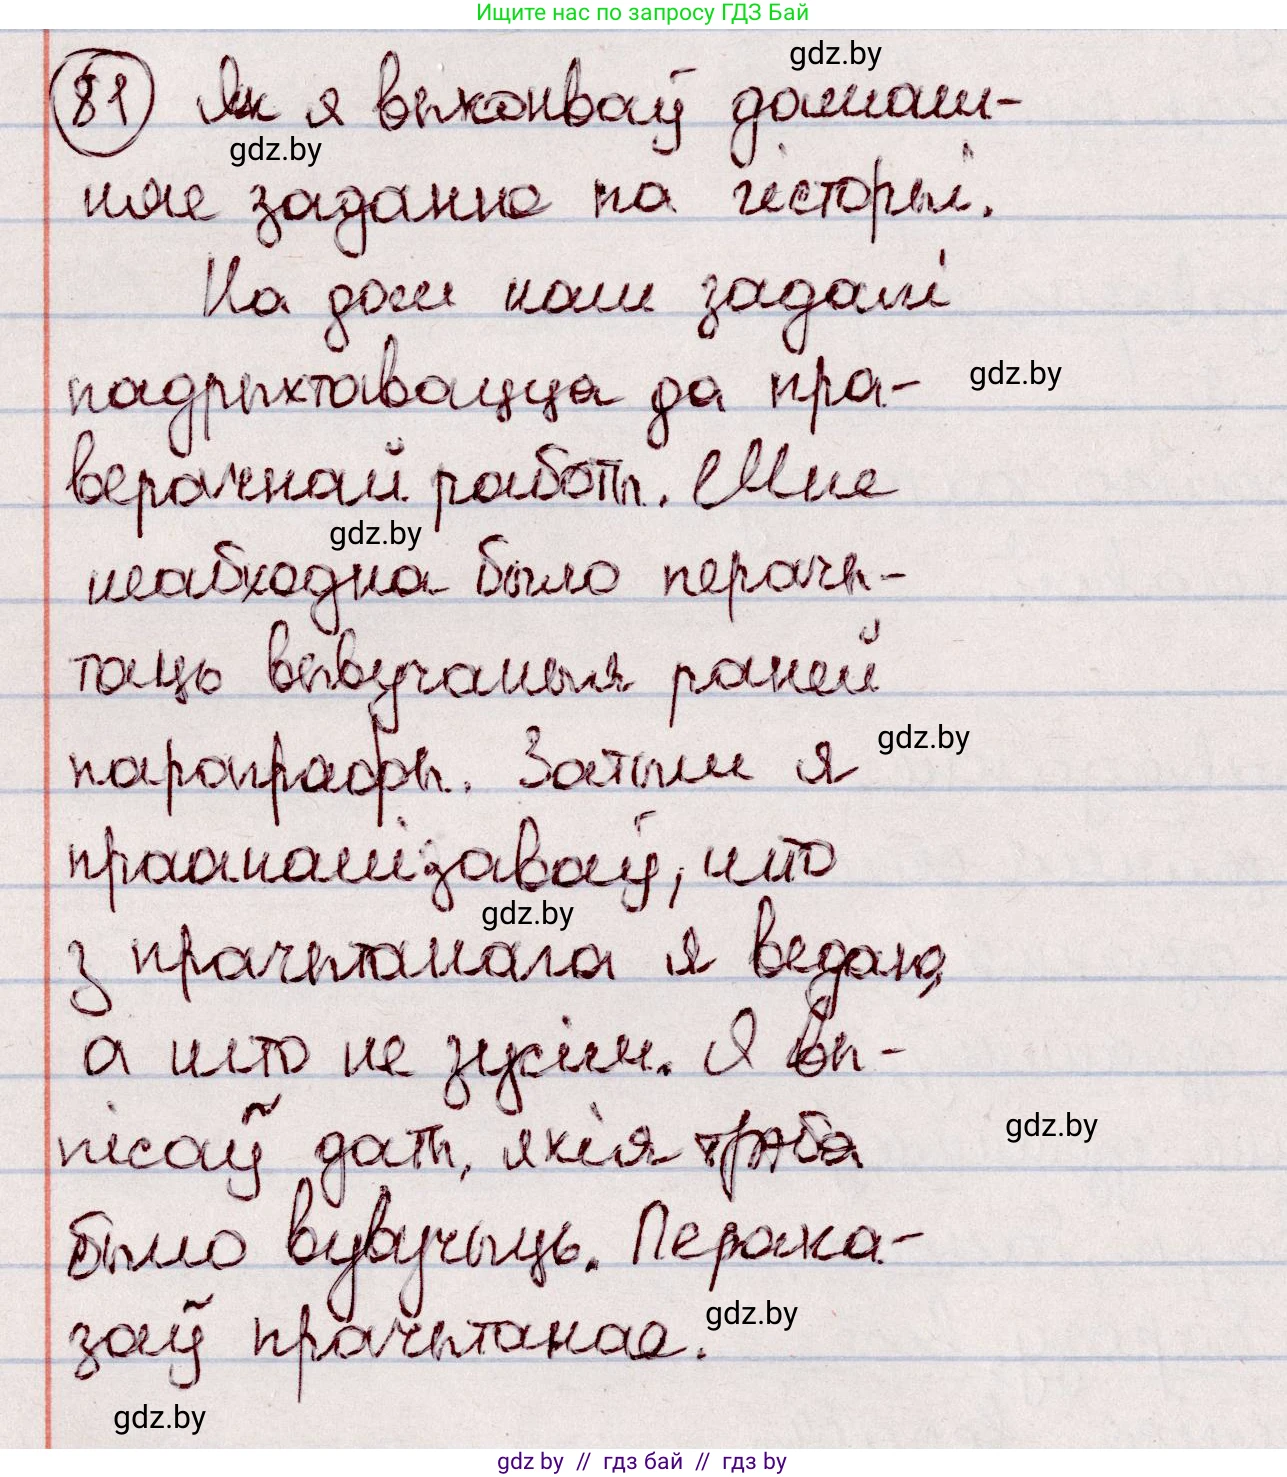 Ищите нас по запросу ГДЗ Бай
gdz.by
81 Як я выконваў дамаш-
gdz.by
няе заданне па гісторыі.
На дом нам задалі
падрыхтавацца да пра-
gdz.by
верачнай работы. Мне
gdz.by
неабходна было перачы-
таць вывучаныя раней
параграфы. Затым я
gdz.by
прааналізаваў, што
gdz.by
з прачытанага я ведаю,
а што не зусім. Я вы-
пісаў даты, якія трэба
gdz.by
было вувучыць. Перака-
заў прачытанае.
gdz.by
gdz.by
gdz by // гдз бай // гдз by